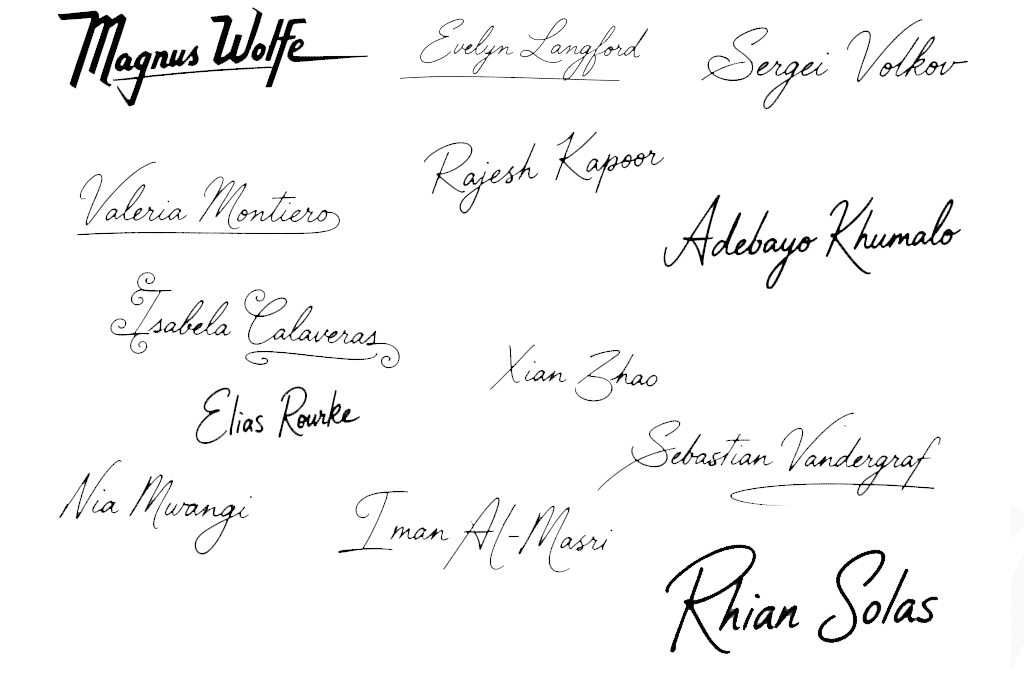 Magnus Wolfe
Evelyn Langford
Sergei Volkov
Rajesh Kapoor
Valeria Montiero
Adebayo Khumalo
Isabela Calaveras
Xian Zhao
Elias Rourke
Sebastian Vandergraf
Nia Mwangi
Iman Al-Masri
Rhian Solas